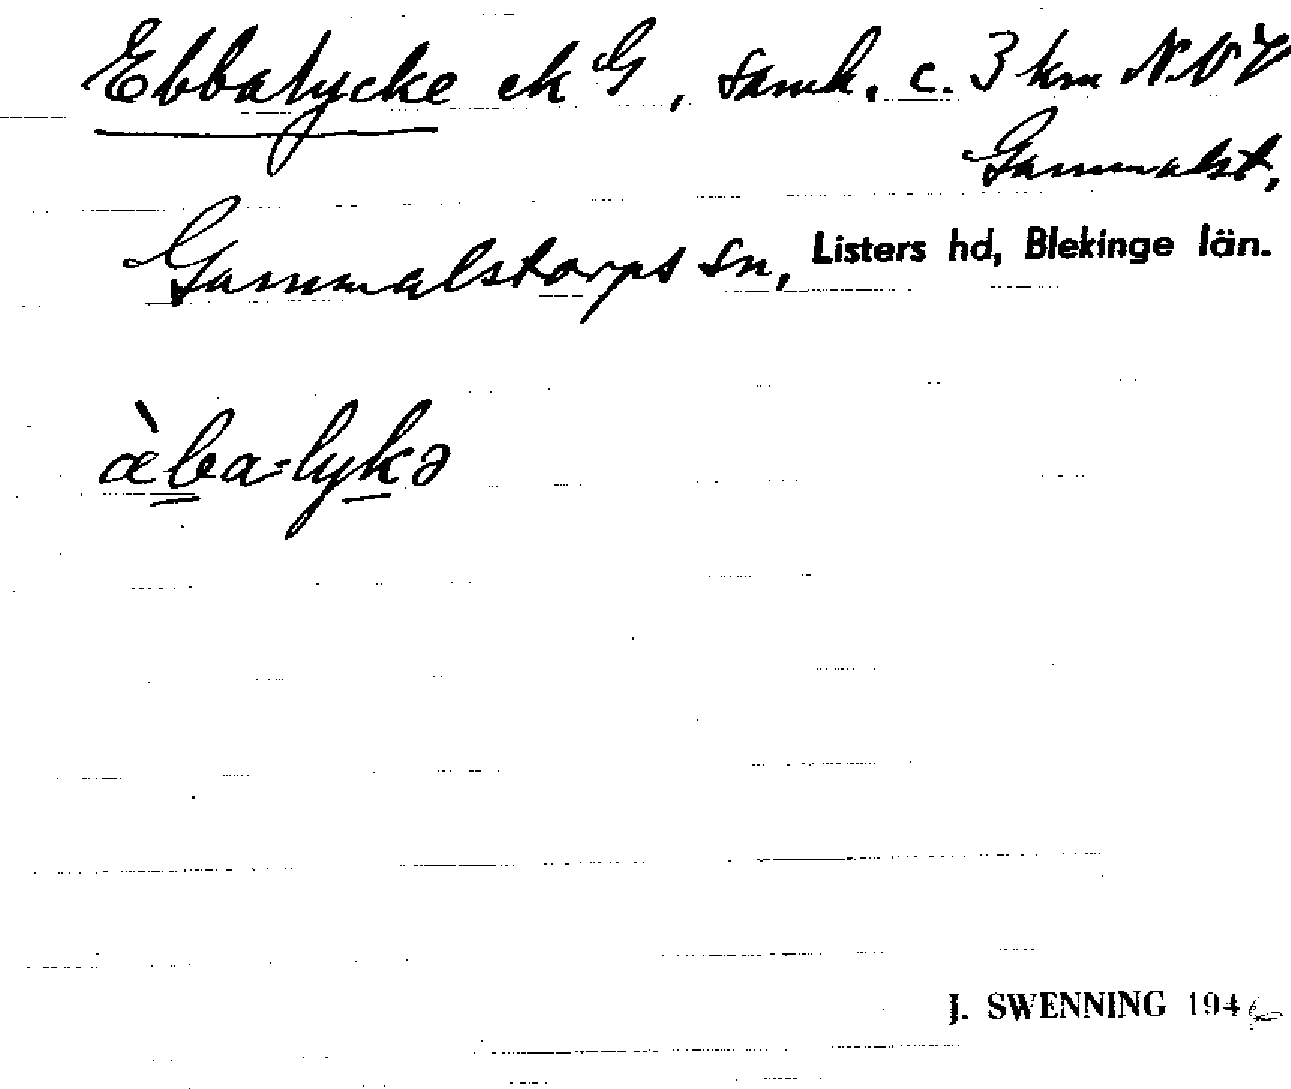 Ebbalycke ek G, samh. c. 3 km NNV
Gammalst,
Gammalstorps sn, Listers hd, Blekinge län.
æ̀ba-lykə
J. SWENNING 1946